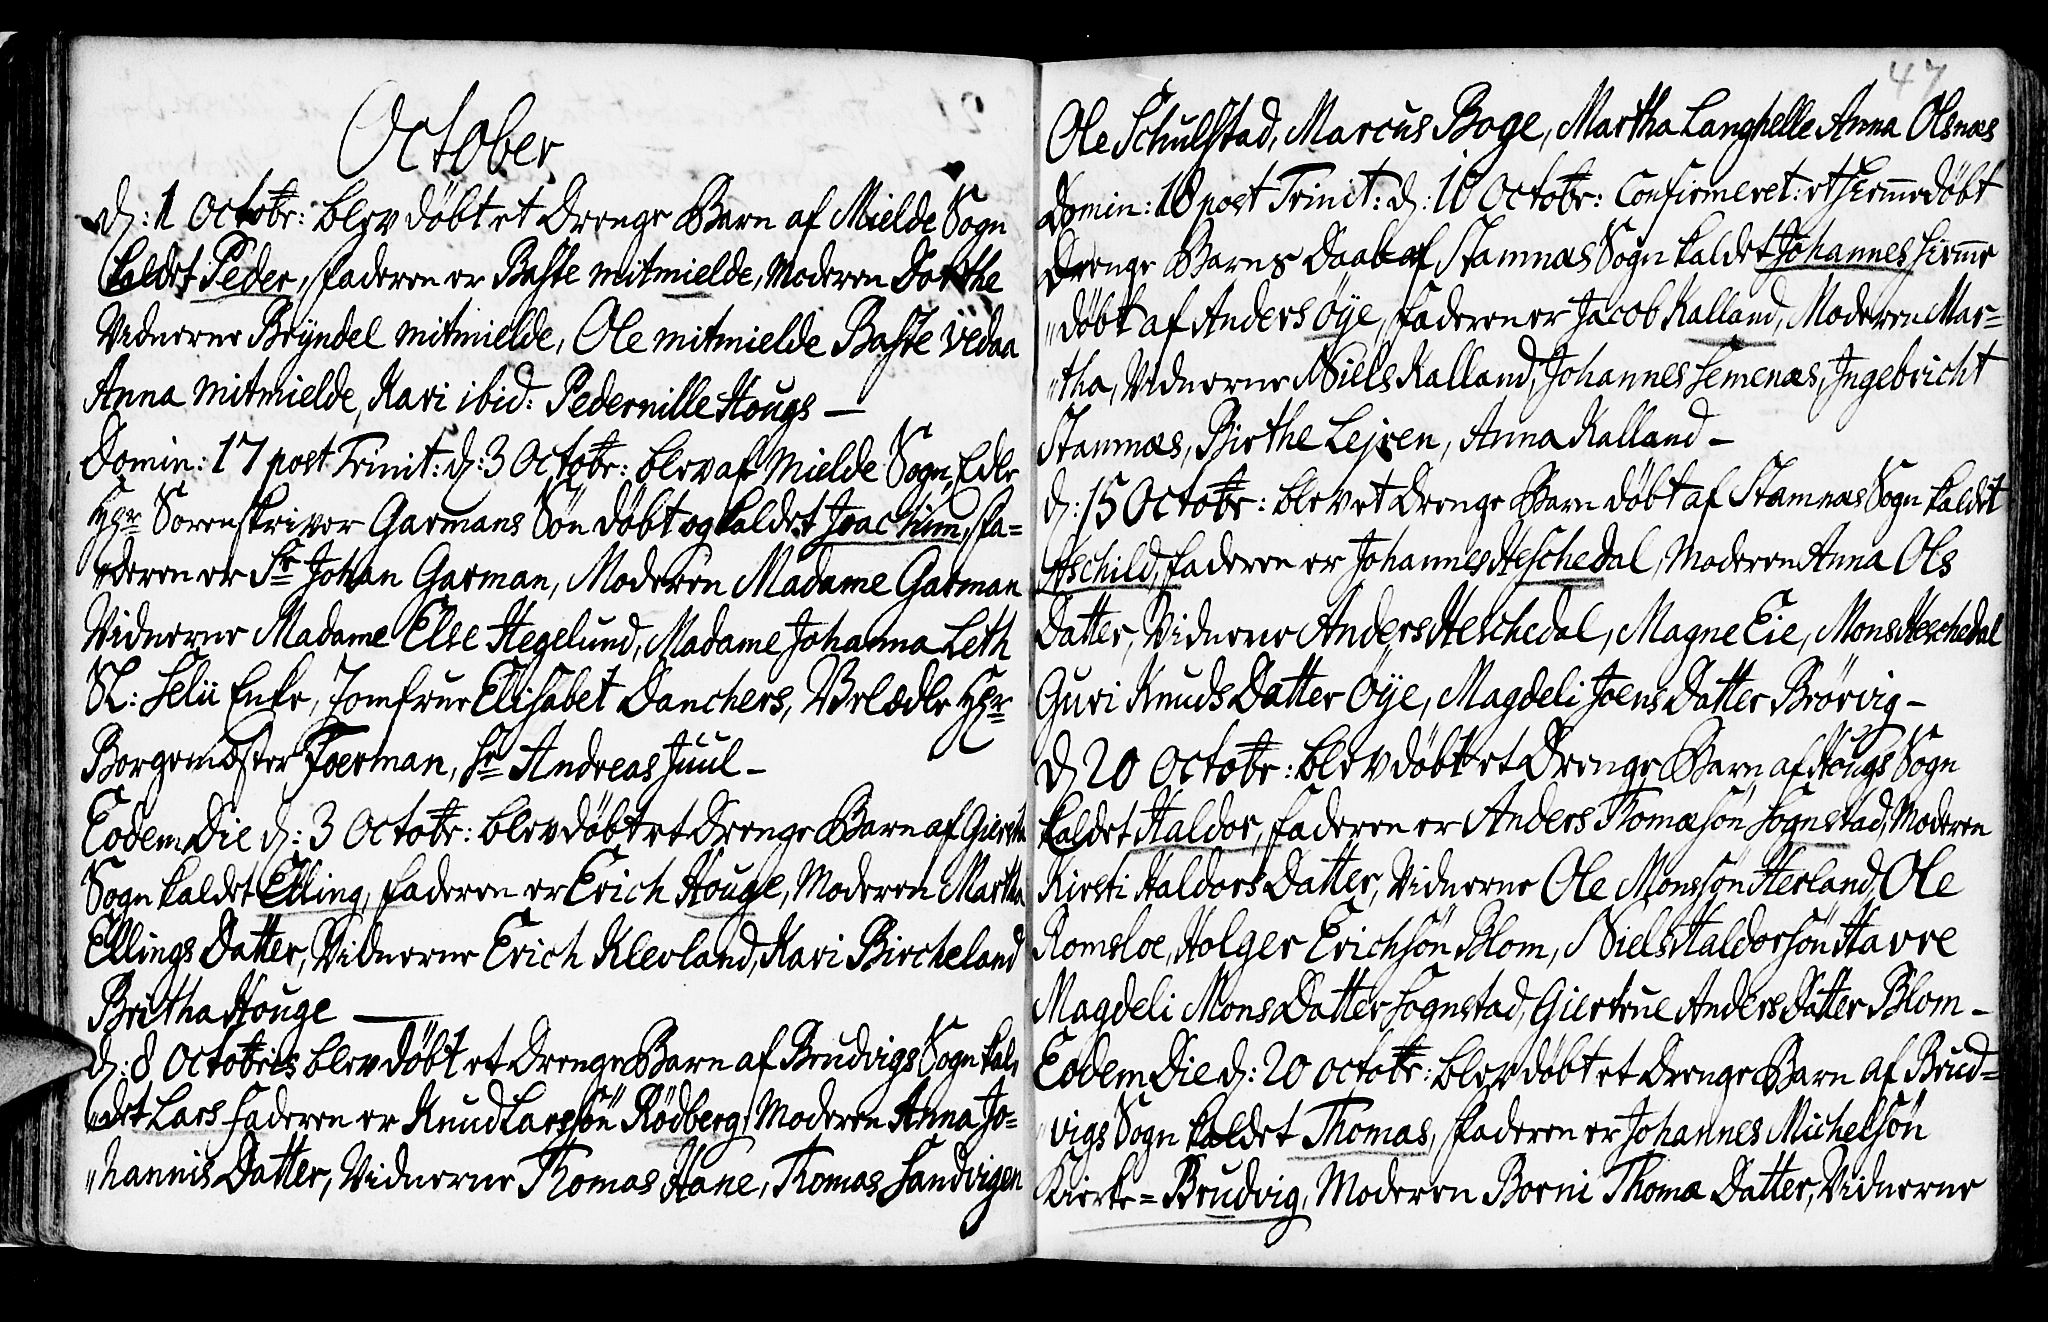 October
d: 1 Octobr: blev döbt et Drenge Barn af Mielde Sogn
kaldet Peder, faderen er Baste mitmielde, Moderen Dorthe
Vidnerne Brÿndel mitmielde, Ole mitmielde Baste vedaa
Anna mitmielde, Kari ibid: Pedernille Hougs —
Domin: 17 post Trinit: d: 3 Octobr: blev af Mielde Sogn, Edle
Hr Sorenskriver Garmans Sön döbt og kaldet Joachim, fa=
"deren er Sr Johan Garman, Moderen Madame Garman
Vidnerne Madame Else Hegelund, Madame Johanna Leth
Sl: Selii Enke, Jomfrue Elisabet Danchers, Velædle Hr
Borgemæster Foerman, Sr Andreas Juul –
Eodem Die d: 3 Octobr: blev döbt et Drenge Barn af Giersta
Sogn kaldet Elling, faderen er Erich Houge, Moderen Martha
Ellings Datter, Vidnerne Erich Klevland, Kari Bircheland
Britha Houge —
d: 8 Octobris blev döbt et Drenge Barn af Brudvigs Sogn kal=
"det Lars faderen er Knud Larssön Rödberg, Moderen Anna Jo=
"hannis Datter, Vidnerne Thomas Hane, Thomas Sandvigen
47
Ole Schulstad, Marcus Boge, Martha Langhelle Anna Olsnæs
Domin: 18 post Trinit: d: 10 Octobr: Confirmeret: et hiemmedöbt
Drenge Barns Daab af Stamnæs Sogn kaldet Johannes hiemme
"döbt af Anders Öÿe, faderen er Jacob Kalland, Moderen Mar=
"tha, Vidnerne Niels Kalland, Johannes Hemenæs, Ingebricht
Stamnæs, Birthe Lejren, Anna Kalland –
d: 15 Octobr: blev et Drenge Barn döbt af Stamnæs Sogn kaldet
Aschild, faderen er Johannes Heschedal, Moderen Anna Ols
Datter, Vidnerne Anders Heschedal, Magne Eie, Mons Heschedal
Guri Knuds Datter Öÿe, Magdeli Joens Datter Brörvig –
d 20 Octobr: blev döbt et Drenge Barn af Hougs Sogn
kaldet Haldor, faderen er Anders Thomæsön Sognstad, Moderen
Kirsti Haldors Datter, Vidnerne Ole Monssön Herland, Ole
Romsloe, Holger Erichsön Blom, Niels Haldorsön Havre
Magdeli Mons Datter Sognstad, Giertrue Anders Datter Blom –
Eodem Die d: 20 Octobr: blev döbt et Drenge Barn af Brud=
"vigs Sogn kaldet Thomas, faderen er Johannes Michelsön
Kierke=Brudvig, Moderen Borni Thoma Datter, Vidnerne